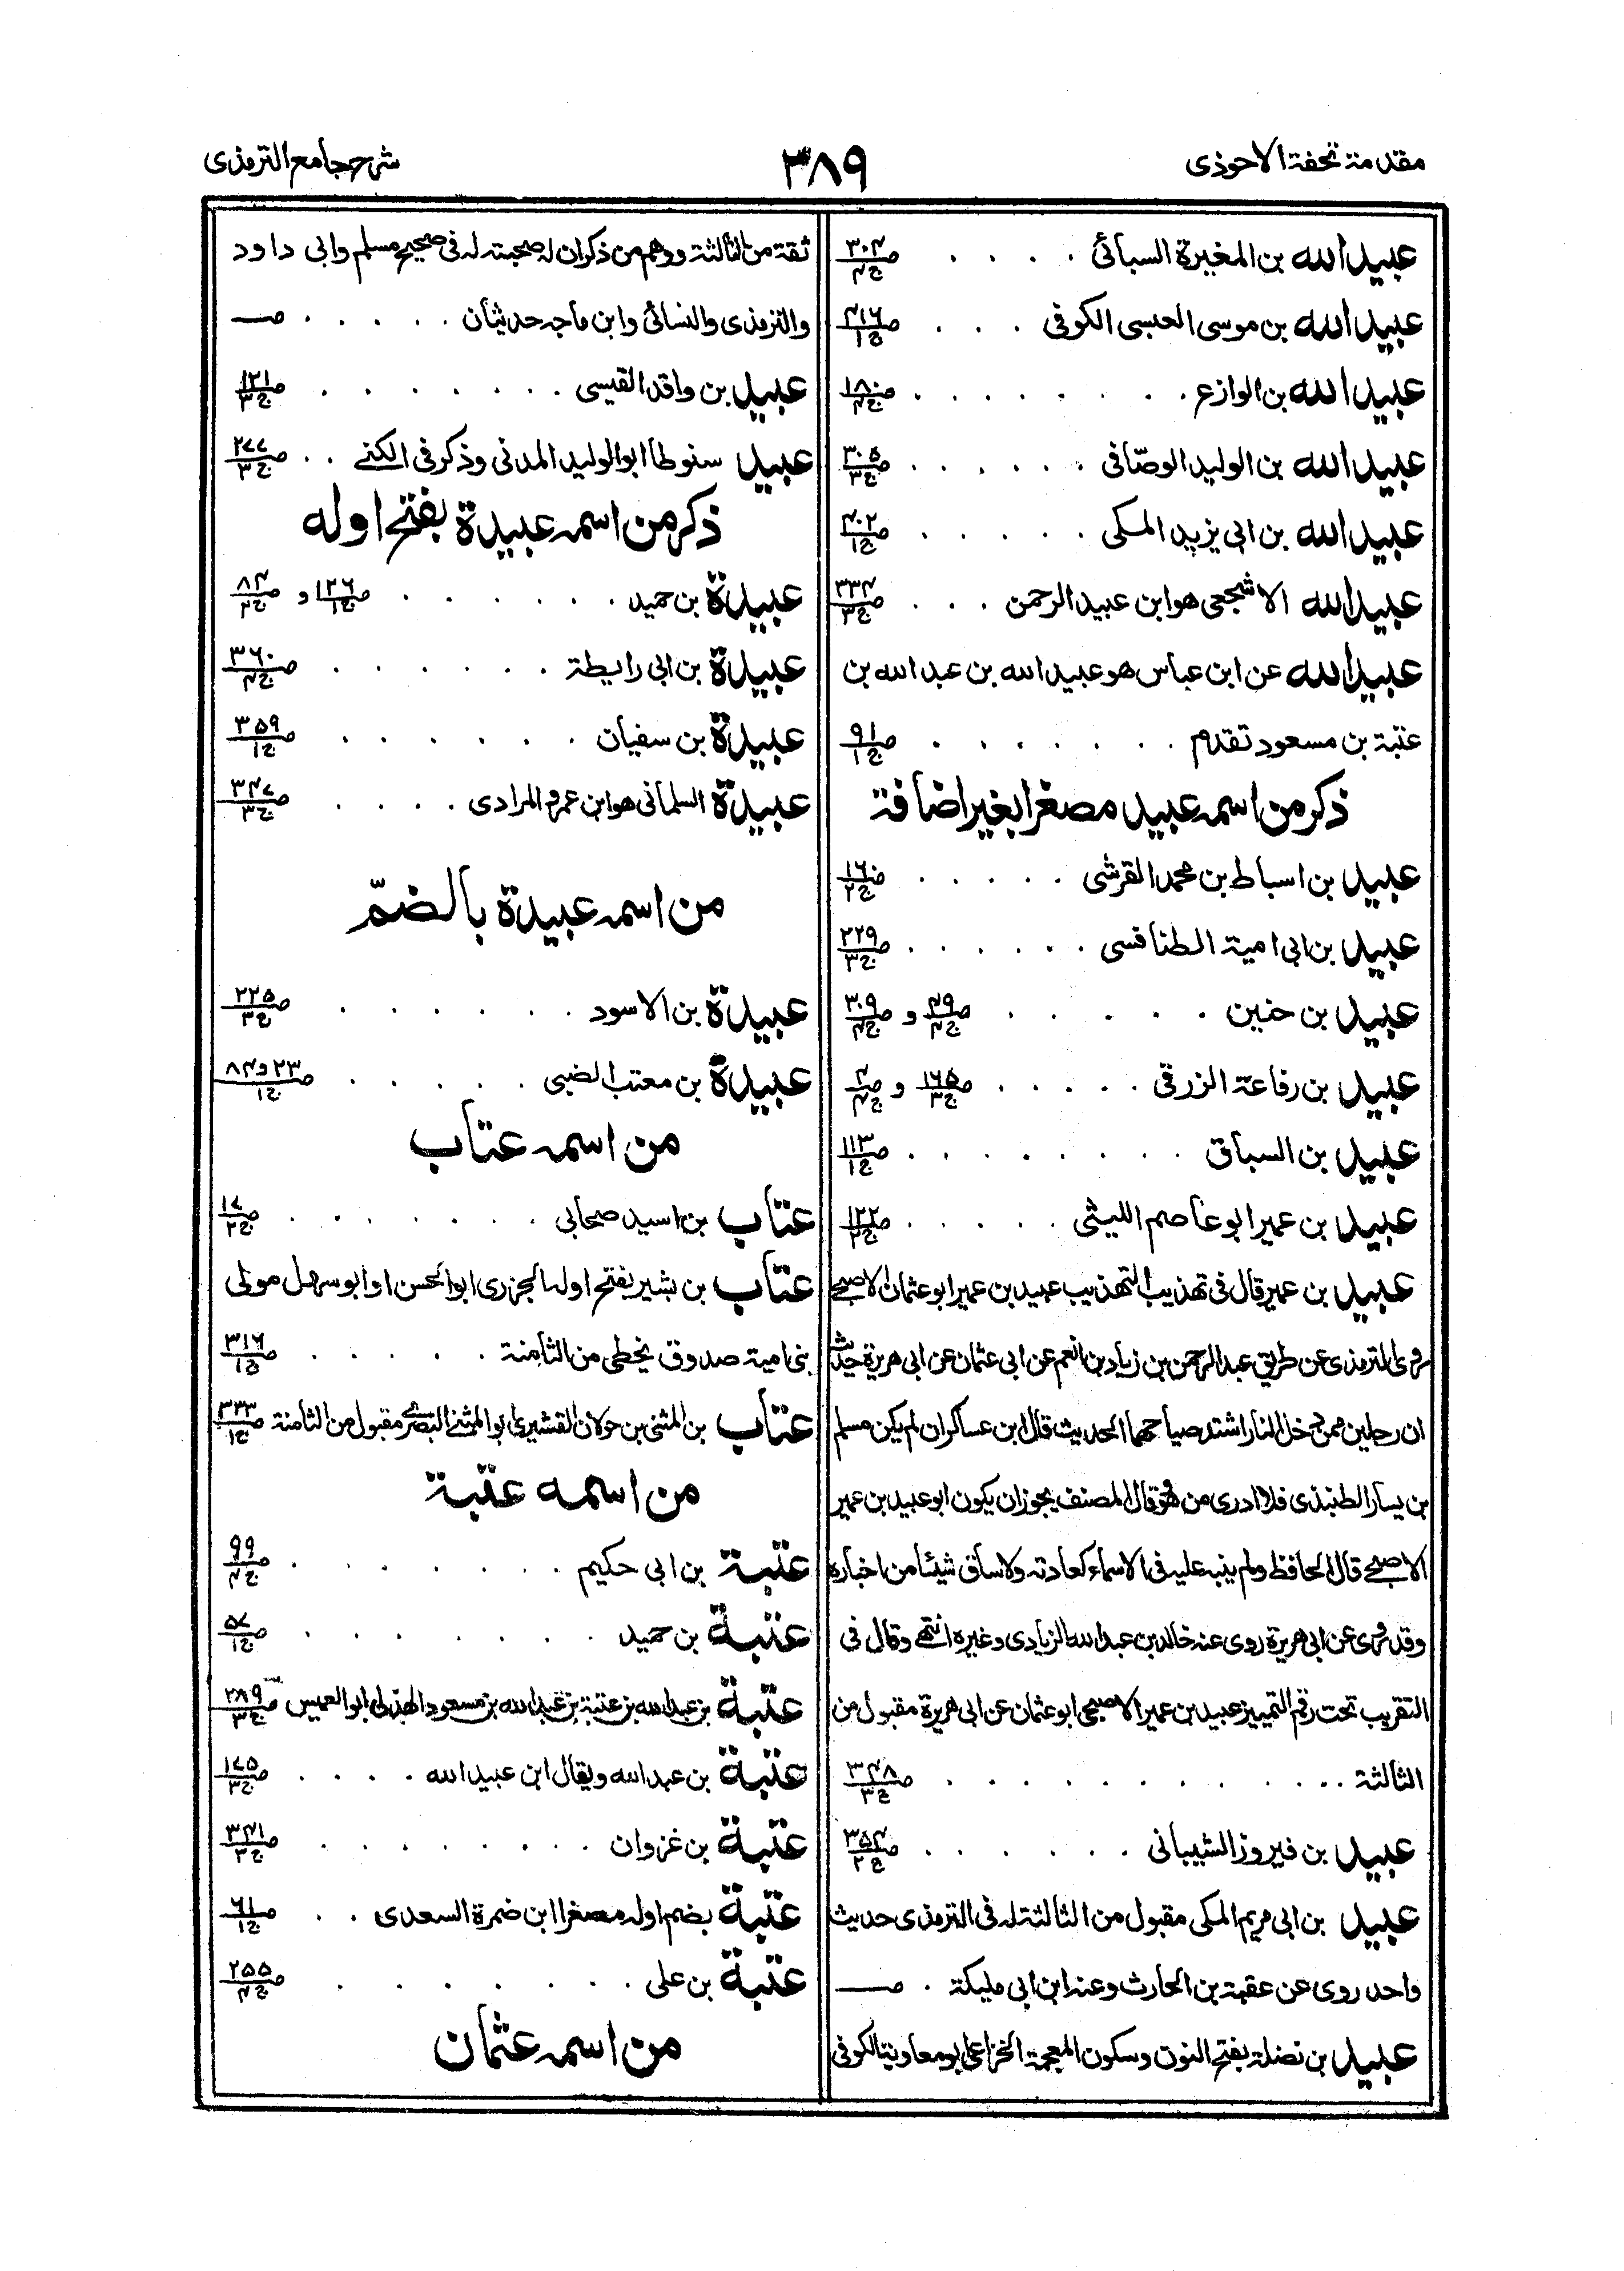 مقدمة تحفة الاحوذى
٣٨٩
شرح جامع الترمذى
عبيد الله بن المغيرة السبائى . . . . ص٣٠٤ ج٤
عبيد الله بن موسى العبسى الكوفى . . . ص٤١٦ ج١
عبيد الله بن الوازع . . . . . . . ص١٨٠ ج٤
عبيد الله بن الوليد الوصّافى . . . . . . ص٣٠٥ ج٣
عبيد الله بن ابى يزيد المكى . . . . . ص٤٠٢ ج١
عبيد الله الاشجعى هو ابن عبيد الرحمن . . . ص٣٣٤ ج٣
عبيد الله عن ابن عباس هو عبيد الله بن عبد الله بن
عتبة بن مسعود تقدم . . . . . . . ص٩١ ج١
ذكر من اسمه عبيد مصغرا بغير اضافة
عبيد بن اسباط بن محمد القرشى . . . . . ص١٦٠ ج٢
عبيد بن ابى امية الطنافسى . . . . . . ص٢٢٩ ج٣
عبيد بن حنين . . . . . ص٤٩ ج٤ و ص٣٠٩ ج٤
عبيد بن رفاعة الزرقى . . . . . ص١٦٥ ج٣ و ص٤ ج٤
عبيد بن السباق . . . . . . . . ص١١٣ ج١
عبيد بن عمير ابو عاصم الليثى . . . . . ص١٢٢ ج٢
عبيد بن عمير قال فى تهذيب التهذيب عبيد بن عمير ابو عثمان الاصبحى
روى الترمذى عن طريق عبد الرحمن بن زياد بن انعم عن ابى عثمان عن ابى هريرة حديث
ان رجلين ممن دخل النار اشتد صياحهما الحديث قال ابن عساكر ان لم يكن مسلم
بن يسار الطنبذى فلا ادرى من هو قال المصنف يجوز ان يكون ابو عبيد بن عمير
الاصبحى قال الحافظ ولم ينبه عليه فى الاسماء كعادته ولا ساق شيئا من اخباره
وقد روى عن ابى هريرة روى عنه خالد بن عبد الله الزيادى وغيره انتهى وقال فى
التقريب تحت رقم التمييز عبيد بن عمير الاصبحى ابو عثمان عن ابى هريرة مقبول من
الثالثة . . . . . . . . . . ص٣٤٨ ج٣
عبيد بن فيروز الشيبانى . . . . . . ص٣٥٤ ج٢
عبيد بن ابى مريم المكى مقبول من الثالثة له فى الترمذى حديث
واحد روى عن عقبة بن الحارث وعنه ابن ابى مليكة . ص
عبيد بن نضلة بفتح النون وسكون المعجمة الخزاعى ابو معاوية الكوفى
ثقة من الثالثة ووهم من ذكر ان له صحبته له فى صحيح مسلم وابى داود
والترمذى والنسائى وابن ماجه حديثان . . . . . ص
عبيد بن واقد القيسى . . . . . . . ص١٢١ ج٣
عبيد سنوطا ابو الوليد المدنى وذكر فى الكنے . . ص٢٧٧ ج٣
ذكر من اسمه عبيدة بفتح اوله
عبيدة بن حميد . . . . . . ص١٢٦ ج١ و ص٨٤ ج٢
عبيدة بن ابى رايطة . . . . . . ص٣٦٠ ج٤
عبيدة بن سفيان . . . . . . ص٣٥٩ ج١
عبيدة السلمانى هو ابن عمرو المرادى . . . . ص٣٤٧ ج٣
من اسمه عبيدة بالضمّ
عبيدة بن الاسود . . . . . . ص٢٢٥ ج٣
عبيدة بن معتب الضبى . . . . . ص٢٣ و ٨٤ ج١
من اسمه عتاب
عتاب بن اسيد صحابى . . . . . . . ص١٧ ج٢
عتاب بن بشير بفتح اوله الجزرى ابو الحسن او ابو سهل مولى
بنى امية صدوق يخطى من الثامنة . . . . . ص٣١٦ ج١
عتاب بن المثنى بن خولان القشيرى ابو المثنى البصرى مقبول من الثامنة ص٣٣٣ ج١
من اسمه عتبة
عتبة بن ابى حكيم . . . . . . . ص٩٩ ج٤
عتبة بن حميد . . . . . . . . ص٥٧ ج١
عتبة بن عبد الله بن عتبة بن عبد الله بن مسعود الهذلى ابو العميس ص٢٨٩ ج٣
عتبة بن عبد الله ويقال ابن عبيد الله . . . . ص١٧٥ ج٣
عتبة بن غزوان . . . . . . . ص٣٤١ ج٣
عتبة بضم اوله مصغرا ابن ضمرة السعدى . . ص٦١ ج١
عتبة بن على . . . . . . ص٢٥٥ ج٤
من اسمه عثمان